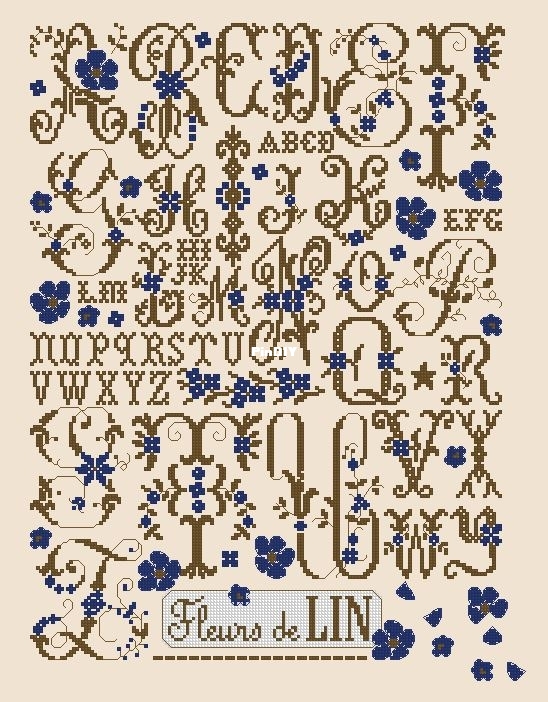 A B C D E F
ABCD
G H I J K
EFG
HI
JK
L M N O P
LM
NOPQRSTU
VWXYZ
Q R
S T U V X
W Y
Z
Fleurs de LIN